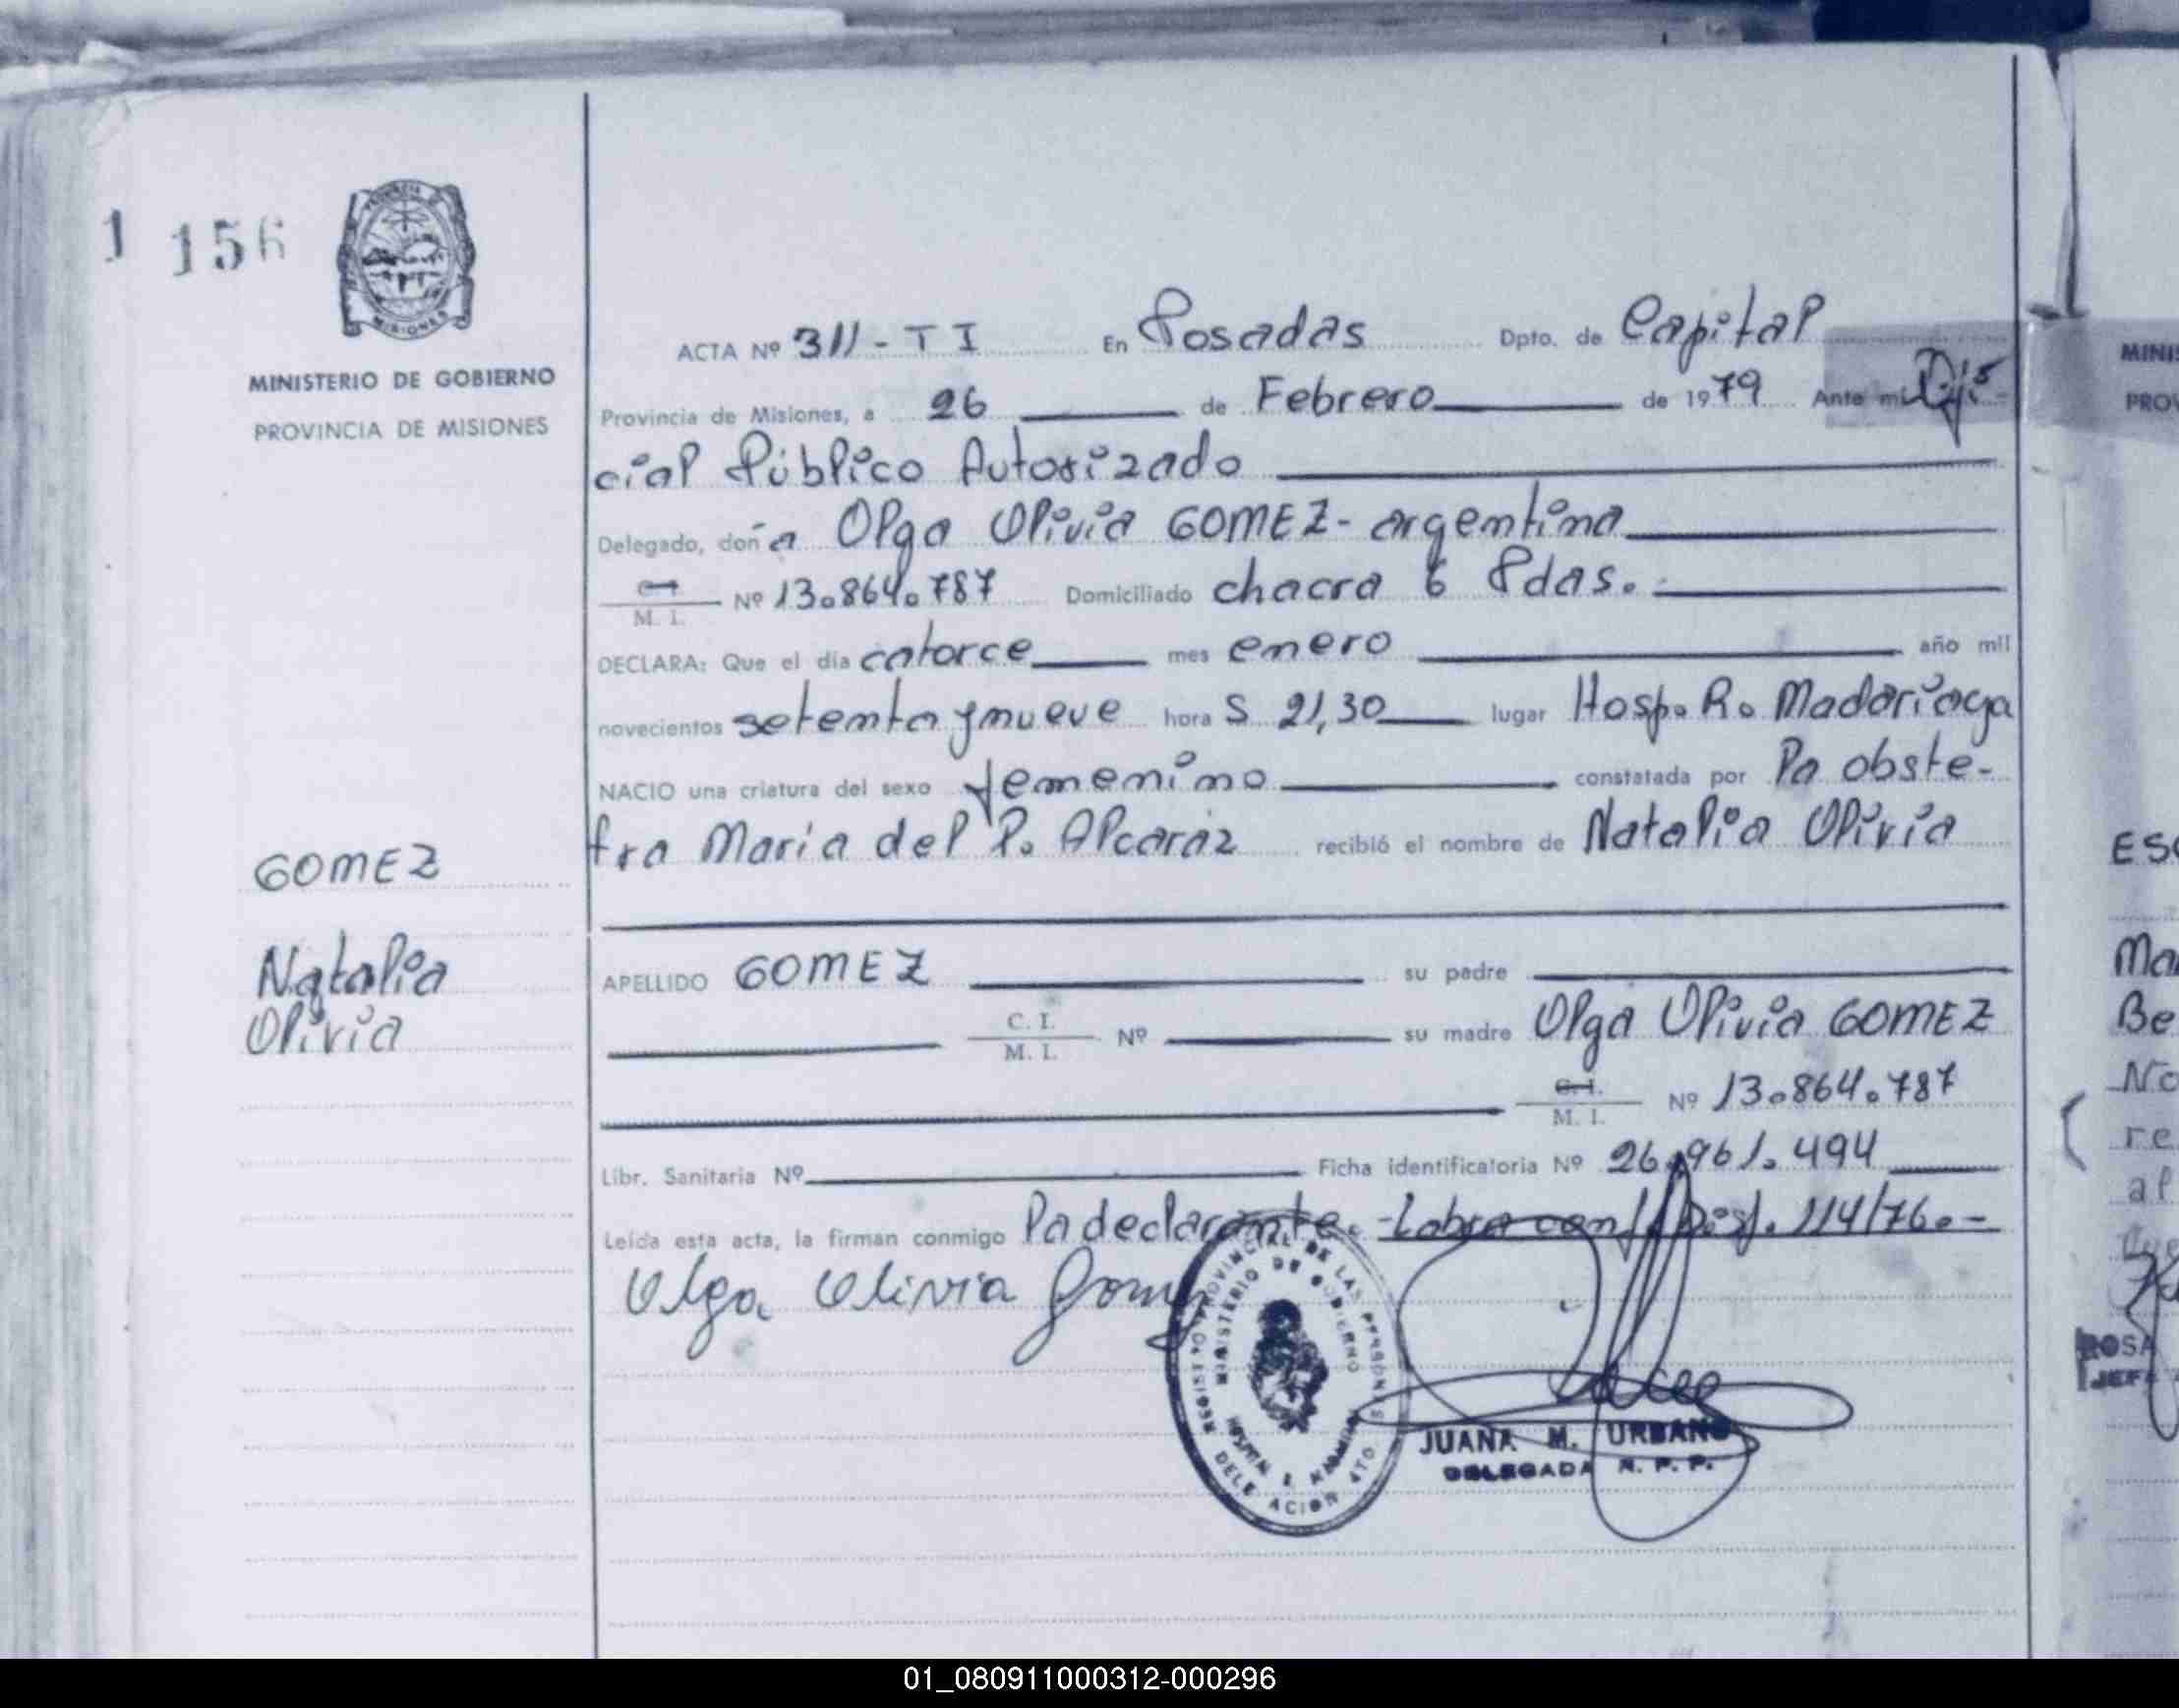 1 156
MISIONES
MINISTERIO DE GOBIERNO
PROVINCIA DE MISIONES
GOMEZ
Natalia
Olivia
ACTA Nº 311 - T I En Posadas Dpto. de Capital
Provincia de Misiones, a 26 de Febrero de 1979 Ante mi
cial Público Autorizado
Delegado, doña Olga Olivia GOMEZ - argentina
M. I. Nº 13.864.787 Domiciliado chacra 6 Pdas.
DECLARA: Que el día catorce mes enero año mil
novecientos setenta y nueve hora S 21,30 lugar Hosp. R. Madariaga
NACIO una criatura del sexo femenino constatada por la obste-
tra Maria del P. Alcaraz recibió el nombre de Natalia Olivia
APELLIDO GOMEZ su padre
C. I.
M. I. Nº su madre Olga Olivia GOMEZ
C. I.
M. I. Nº 13.864.787
Libr. Sanitaria Nº Ficha identificatoria Nº 26.961.494
Leída esta acta, la firman conmigo la declarante. - Labra conf. Disp. 114/76.-
Olga Olivia Gomez
REGISTRO PROVINCIAL DE LAS PERSONAS
MINISTERIO DE GOBIERNO
JUANA M. URBANO
DELEGADA R. P. P.
MINIS
PROV
ESC
Ma
Be
No
re
al
ROSA
JEF
01_080911000312-000296